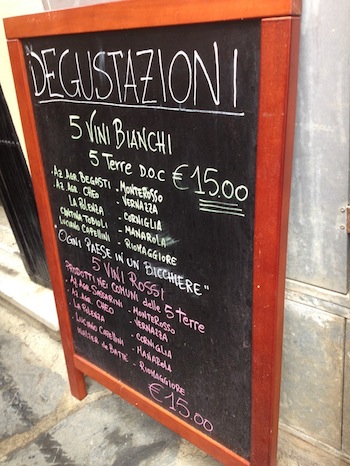 DEGUSTAZIONI
5 VINI BIANCHI
5 TERRE D.O.C €15.00
AZ. AGR. BEGASTI - MONTEROSSO
AZ. AGR. CHEO - VERNAZZA
LA POLENZA - CORNIGLIA
CANTINA TOBIOLI - MANAROLA
LUCIANO CAPELLINI - RIOMAGGIORE
"OGNI PAESE IN UN BICCHIERE"
5 VINI ROSSI
PRODOTTI NEI COMUNI delle 5 terre
AZ. AGR. SASSARINI - MONTEROSSO
AZ. AGR. CHEO - VERNAZZA
LA POLENZA - CORNIGLIA
LUCIANO CAPELLINI - MANAROLA
WALTER de BATTÈ - RIOMAGGIORE
€15.00